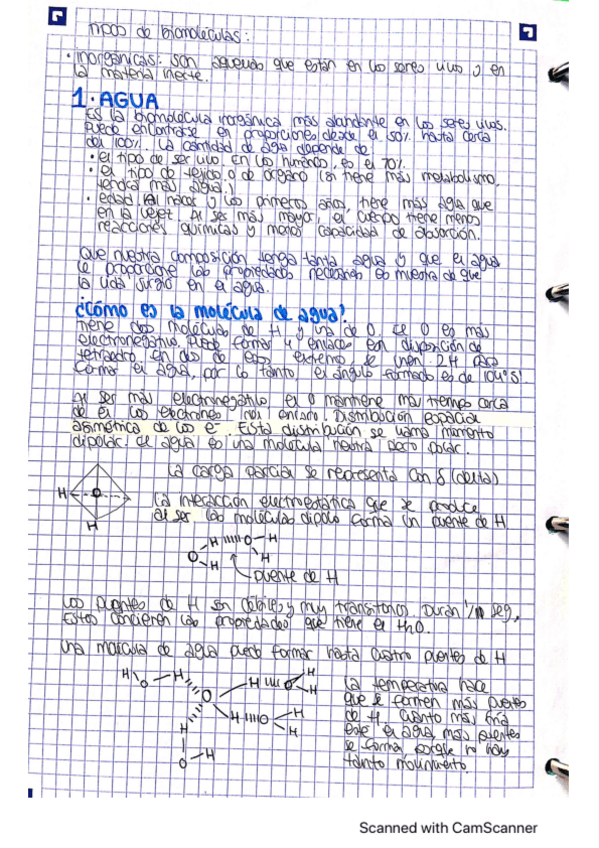 Tipos de biomoléculas:
· inorgánicas: son aquellas que están en los seres vivos y en
la materia inerte.
1. AGUA
Es la biomolécula inorgánica más abundante en los seres vivos.
Puede encontrarse en proporciones desde el 50% hasta cerca
del 100%. La cantidad de agua depende de:
· el tipo de ser vivo. En los humanos, es el 70%.
· el tipo de tejido o de órgano (si tiene más metabolismo,
tendrá más agua.)
· edad. Al nacer y los primeros años, tiene más agua que
en la vejez. Al ser más mayor, el cuerpo tiene menos
reacciones químicas y menos capacidad de absorción.
Que nuestra composición tenga tanta agua y que el agua
le proporcione las propiedades necesarias es muestra de que
la vida surgió en el agua.
¿Cómo es la molécula de agua?
Tiene dos moléculas de H y una de O. El O es más
electronegativo. Puede formar 4 enlaces en disposición de
tetraedro, en dos de esos extremos, se unen 2H para
formar el agua, por lo tanto, el ángulo formado es de 104'5º.
Al ser más electronegativo, el O mantiene más tiempo cerca
de él los electrones del enlace. Distribución espacial
asimétrica de los e-. Esta distribución se llama momento
dipolar: el agua es una molécula neutra pero polar.
La carga parcial se representa con δ (delta)
H O
H
La interacción electrostática que se produce
al ser las moléculas dipolo forma un puente de H
H O H
O H H
puente de H
Los puentes de H son débiles y muy transitorios. Duran seg,
Estos confieren las propiedades que tiene el H2O.
Una molécula de agua puede formar hasta cuatro puentes de H
H O H
O H O H
H
H O H
H
H
O H
La temperatura hace
que se formen más puentes
de H. Cuanto más fría
esté el agua, más puentes
se forman porque no hay
tanto movimiento.
Scanned with CamScanner